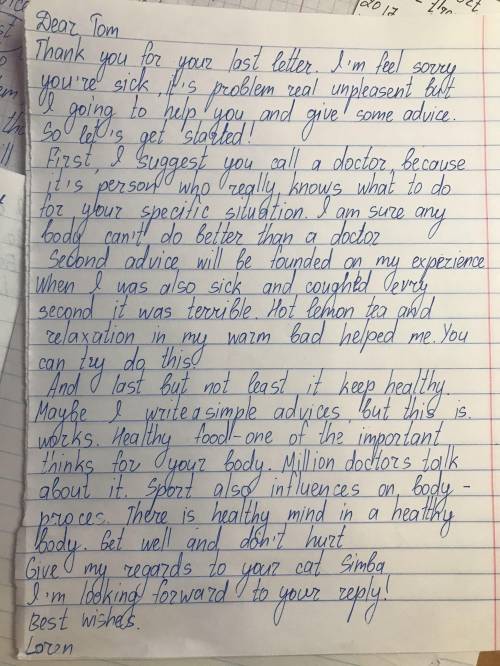 Dear Tom
Thank you for your last letter. I'm feel sorry
you're sick, it's problem real unpleasent but
I going to help you and give some advice.
So let's get started!
First, I suggest you call a doctor, because
it's person who really knows what to do
for your specific situation. I am sure any
body can't do better than a doctor
Second advice will be founded on my experience
When I was also sick and coughed evry
second it was terrible. Hot lemon tea and
relaxation in my warm bad helped me. You
can try do this.
And last but not least it keep healthy.
Maybe I write a simple advices, but this is
works. Healthy food - one of the important
thinks for your body. Million doctors talk
about it. Sport also influences on body -
proces. There is healthy mind in a healthy
body. Get well and don't hurt
Give my regards to your cat Simba
I'm looking forward to your reply!
Best wishes.